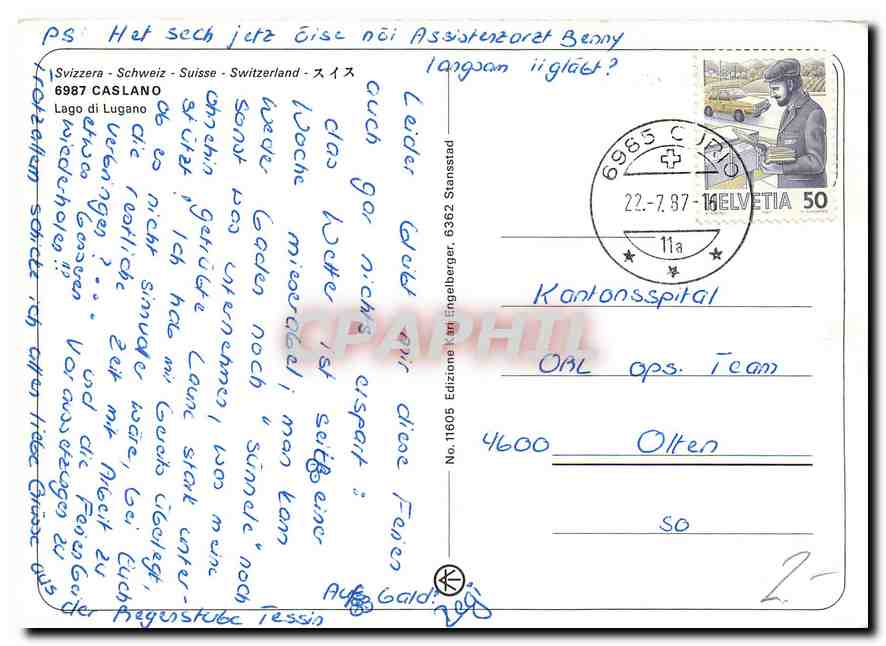 PS: Het sech jetz öise nöi Assistenzarzt Benny
langsam iigläbt?
Svizzera - Schweiz - Suisse - Switzerland - スイス
6987 CASLANO
Lago di Lugano
Leider bleibt mir diese Ferien
auch gar nichts erspart"
das Wetter ist seit einer
Woche miserabel; man kann
weder baden noch "sünnele" noch
sonst was unternehmen, was meine
ohnehin getrübte Laune stark unter-
stützt! Ich hab mir bereits überlegt,
ob es nicht sinnvoller wäre, bei Euch
die restliche Zeit mit Arbeit zu
verbringen?... und die Ferien bei
etwas besseren Voraussetzungen zu
wiederholen!!
Trotz allem schicke ich allen liebe Grüsse aus
der Regenstube Tessin
Auf bald!
No. 11605 Edizione Karl Engelberger, 6362 Stansstad
6985 CURIO
22.-7.87-16
11a
HELVETIA 50
Kantonsspital
OBL ops. Team
4600 Olten
SO
2.-
CPAPHIL